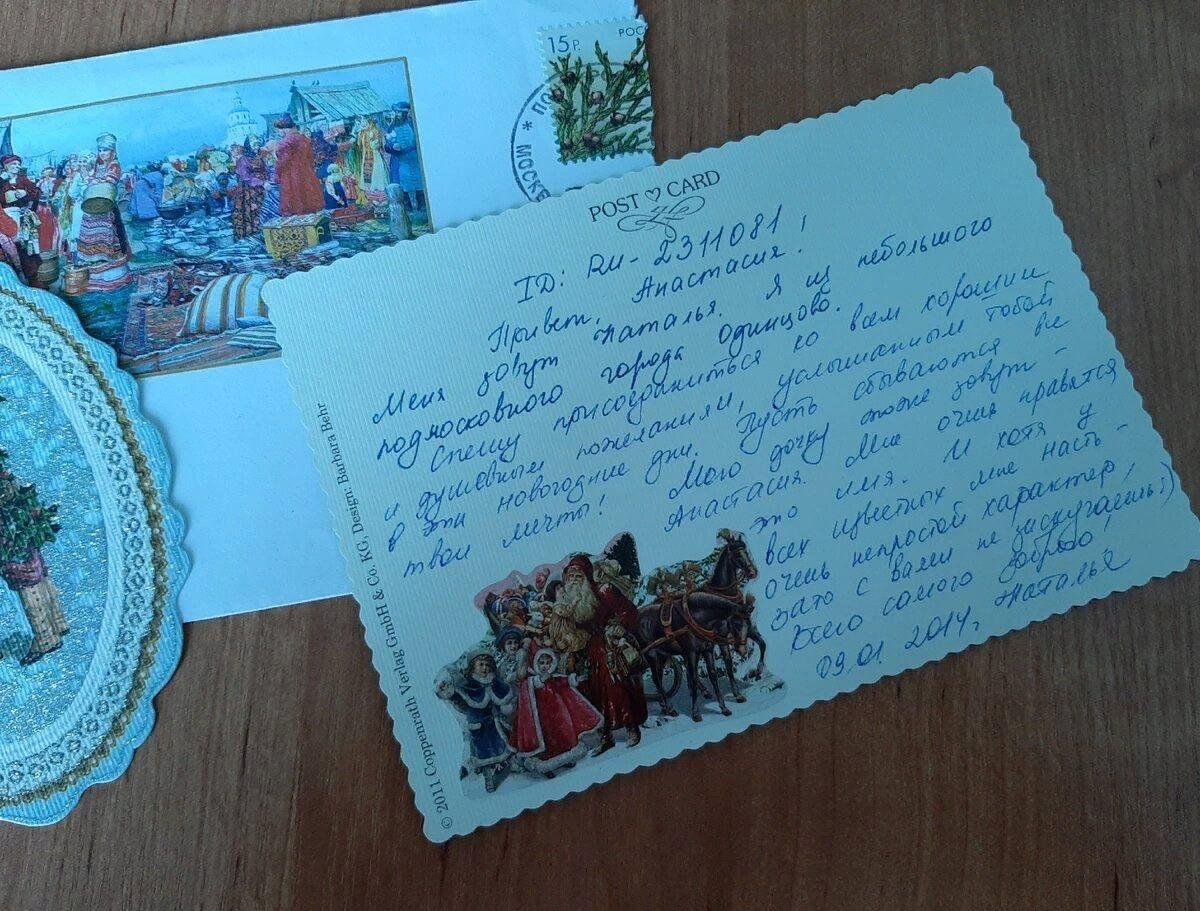 15р.
РОС
МОСКВ
POST CARD
ID: RU-2311081,
Привет, Анастасия!
Меня зовут Наталья. Я из небольшого
подмосковного города Одинцово.
Спешу присоединиться ко всем хорошим
и душевным пожеланиям, услышанным тобой
в эти новогодние дни. Пусть сбываются все
твои мечты! Мою дочку тоже зовут –
Анастасия. Мне очень нравится
это имя. И хотя у
всех известных мне Насть –
очень непростой характер,
зато с вами не заскучаешь:)
Всего самого доброго!
09.01.2014г. Наталья
© 2011 Coppenrath Verlag GmbH & Co. KG, Design: Barbara Behr